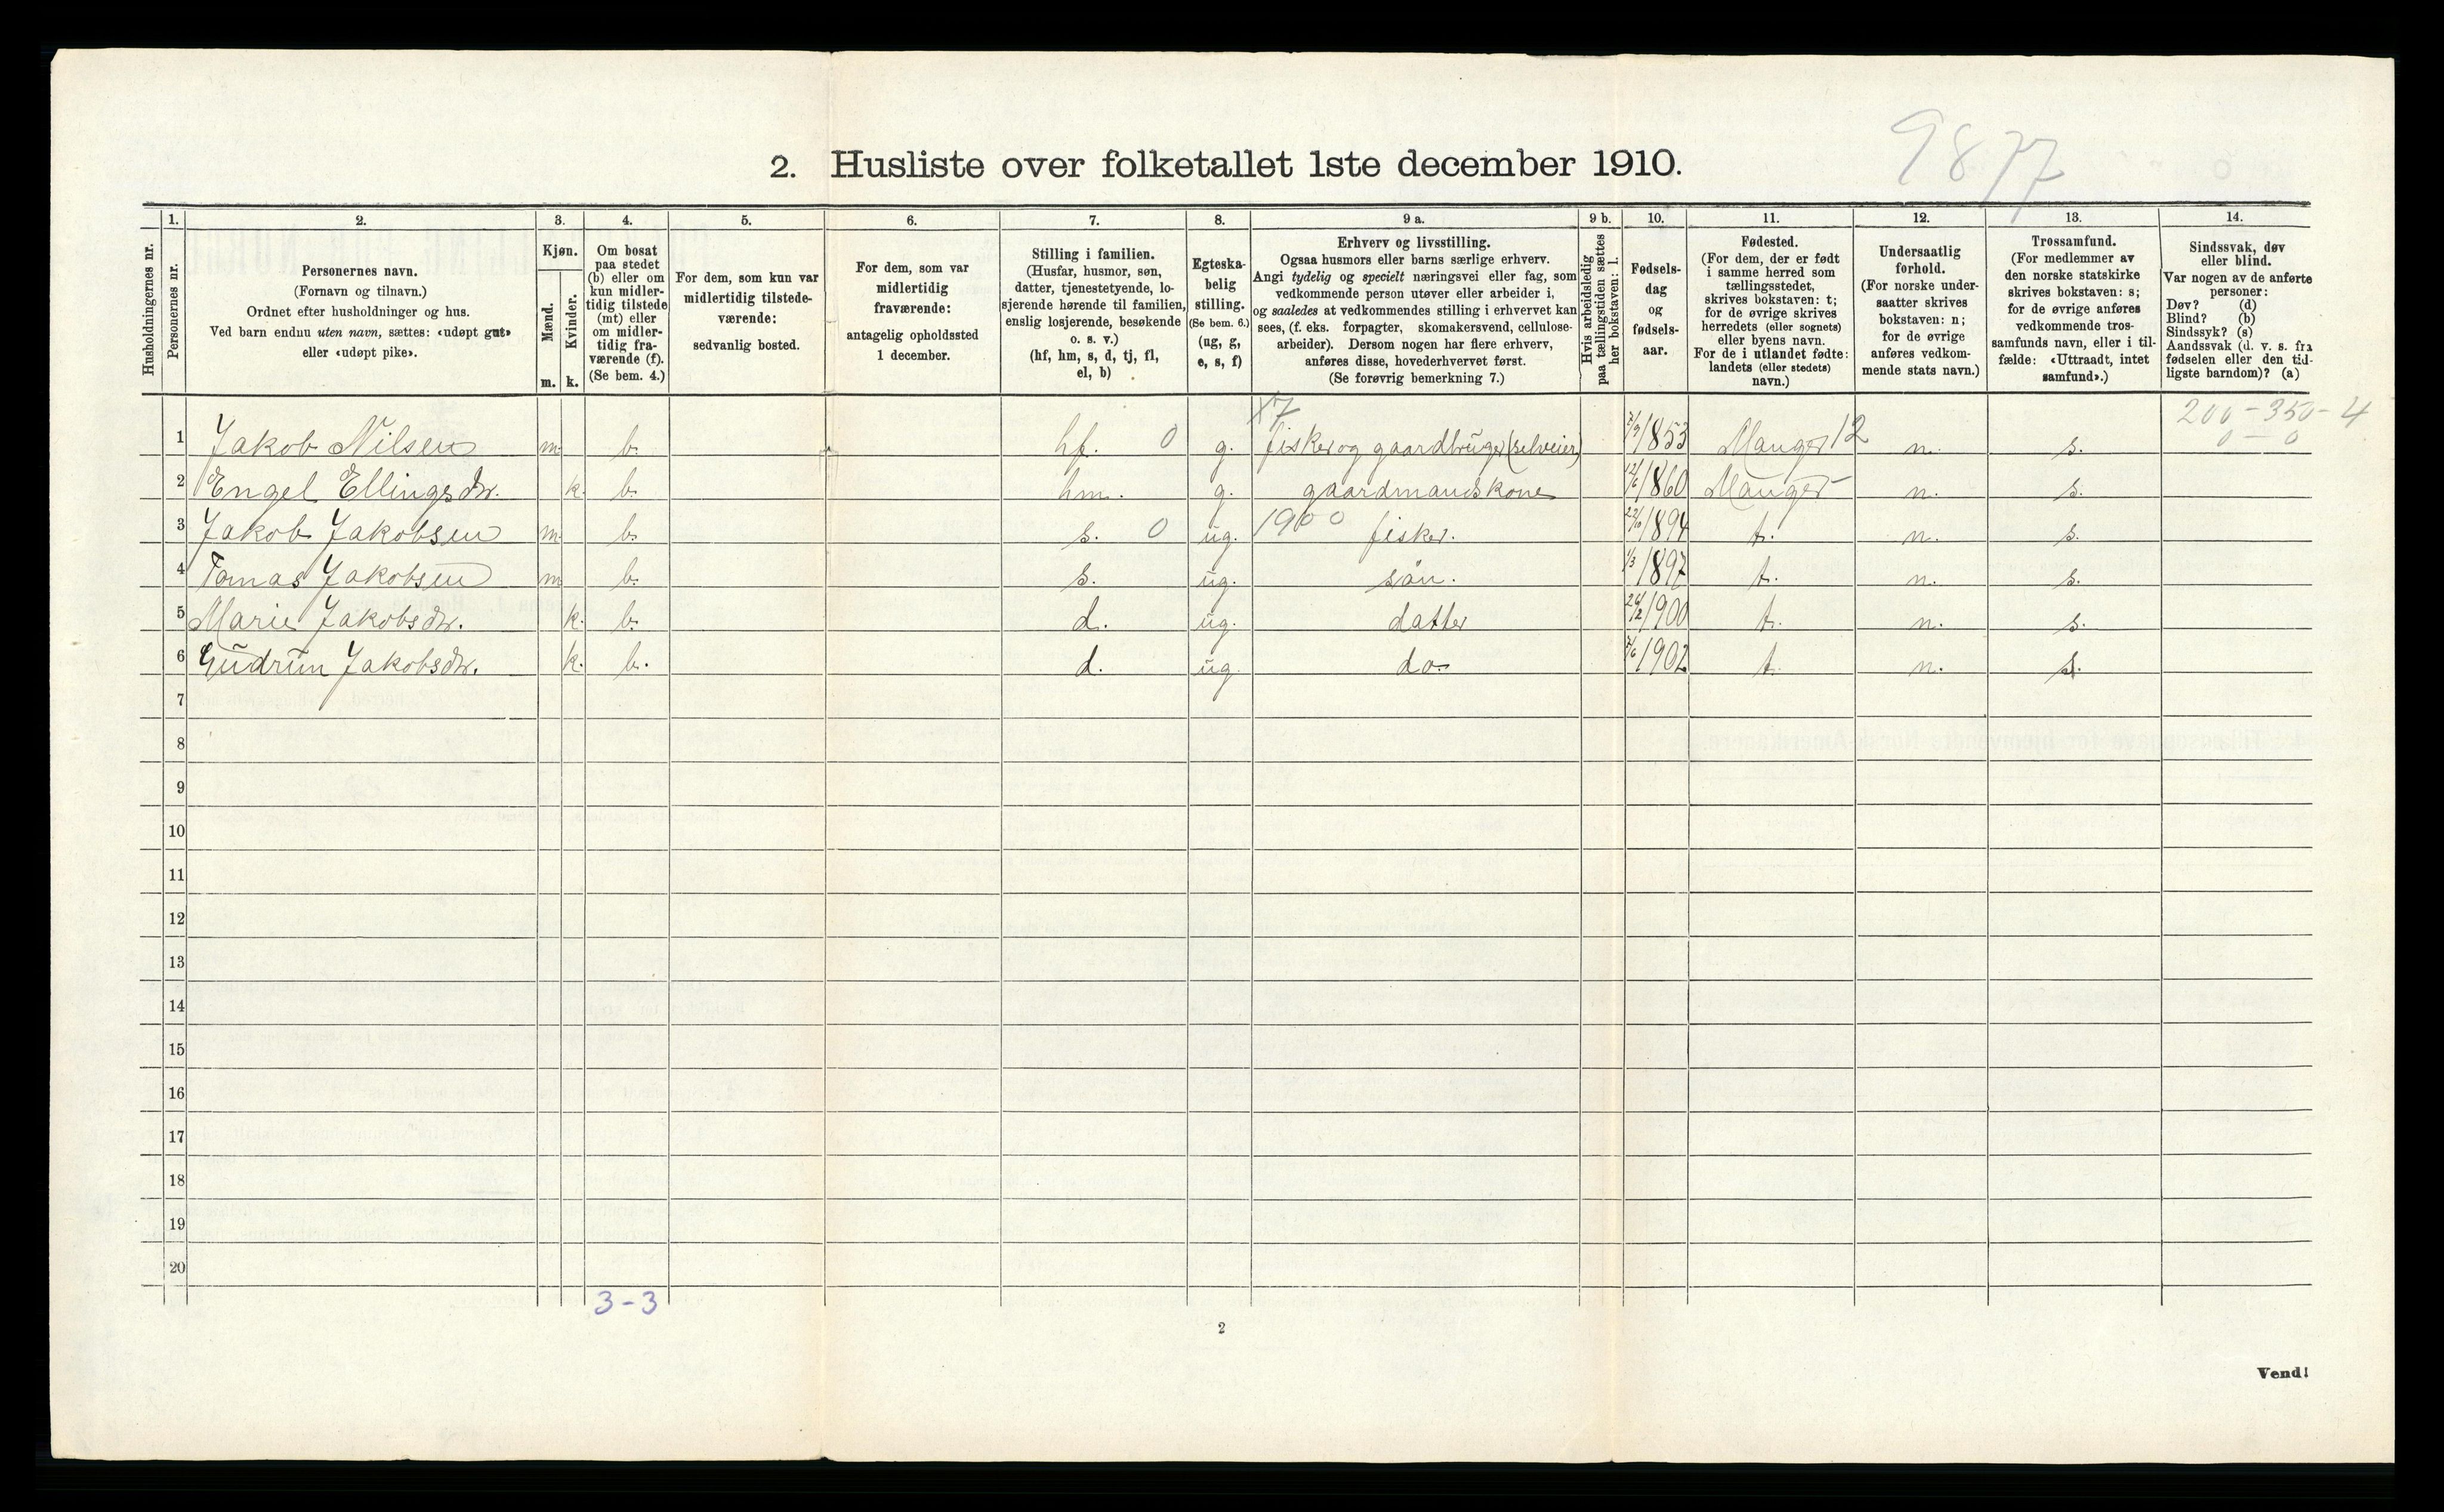 9877
2. Husliste over folketallet 1ste december 1910.
Husholdningernes nr.
1. Personernes nr.
2. Personernes navn.
(Fornavn og tilnavn.)
Ordnet efter husholdninger og hus.
Ved barn endnu uten navn, sættes: «udøpt gut»
eller «udøpt pike».
3. Kjøn.
Mænd. m.
Kvinder. k.
4. Om bosat
paa stedet
(b) eller om
kun midler-
tidig tilstede
(mt) eller
om midler-
tidig fra-
værende (f).
(Se bem. 4.)
5. For dem, som kun var
midlertidig tilstede-
værende:
sedvanlig bosted.
6. For dem, som var
midlertidig
fraværende:
antagelig opholdssted
1 december.
7. Stilling i familien.
(Husfar, husmor, søn,
datter, tjenestetyende, lo-
sjerende hørende til familien,
enslig losjerende, besøkende
o. s. v.)
(hf, hm, s, d, tj, fl,
el, b)
8. Egteska-
belig
stilling.
(Se bem. 6.)
(ug, g,
e, s, f)
9 a. Erhverv og livsstilling.
Ogsaa husmors eller barns særlige erhverv.
Angi tydelig og specielt næringsvei eller fag, som
vedkommende person utøver eller arbeider i,
og saaledes at vedkommendes stilling i erhvervet kan
sees, (f. eks. forpagter, skomakersvend, cellulose-
arbeider). Dersom nogen har flere erhverv,
anføres disse, hovederhvervet først.
(Se forøvrig bemerkning 7.)
9 b. Hvis arbeidsledig
paa tællingstiden sættes
her bokstaven: l.
10. Fødsels-
dag
og
fødsels-
aar.
11. Fødested.
(For dem, der er født
i samme herred som
tællingsstedet,
skrives bokstaven: t;
for de øvrige skrives
herredets (eller sognets)
eller byens navn.
For de i utlandet fødte:
landets (eller stedets)
navn.)
12. Undersaatlig
forhold.
(For norske under-
saatter skrives
bokstaven: n;
for de øvrige
anføres vedkom-
mende stats navn.)
13. Trossamfund.
(For medlemmer av
den norske statskirke
skrives bokstaven: s;
for de øvrige anføres
vedkommende tros-
samfunds navn, eller i til-
fælde: «Uttraadt, intet
samfund».)
14. Sindssvak, døv
eller blind.
Var nogen av de anførte
personer:
Døv? (d)
Blind? (b)
Sindssyk? (s)
Aandssvak (d. v. s. fra
fødselen eller den tid-
ligste barndom)? (a)
x7 200-350-4
1 Jakob Nilsen m b. hf. 0 g. fisker og gaardbruger (selveier) 7/9 1853 Manger 12 n. s. 0-0
2 Engel Ellingsdtr. k. b. hm. g. gaardmandskone 12/6 1860 Manger n. s.
3 Jakob Jakobsen m b. s. 0 ug. 1900 fisker. 22/10 1894 t. n. s.
4 Tomas Jakobsen m b. s. ug. sön. 1/3 1897 t. n. s.
5 Marie Jakobsdtr. k. b. d. ug. datter 24/2 1900 t. n. s.
6 Gudrun Jakobsdtr. k. b. d. ug. do 5/6 1902 t. n. s.
7
8
9
10
11
12
13
14
15
16
17
18
19
20
3-3
2
Vend!